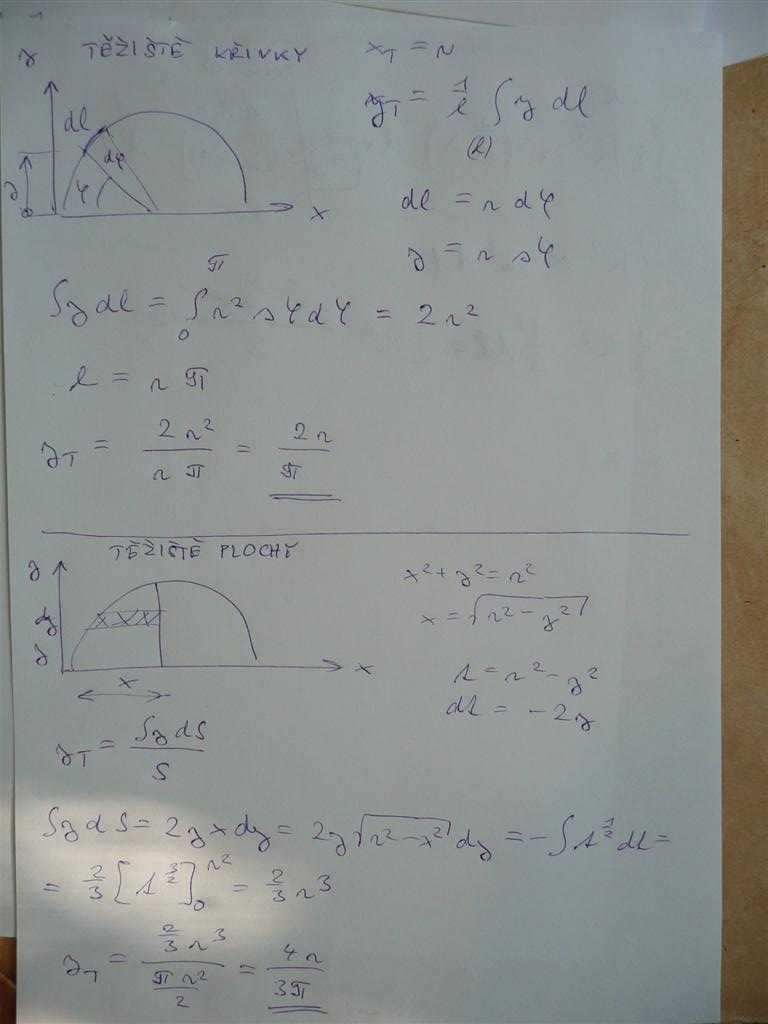 TĚŽIŠTĚ KŘIVKY
x_T = r
y_T = 1/l ∫ y dl
(l)
y
dl
dφ
φ
y
x
dl = r dφ
y = r sφ
∫y dl = ∫₀^π r² sφ dφ = 2r²
l = r π
y_T = 2r² / r π = 2r / π
TĚŽIŠTĚ PLOCHY
y
dy
y
x
x
x² + y² = r²
x = √(r² - y²)
t = r² - y²
dt = -2y
y_T = ∫y dS / S
∫y dS = 2y x dy = 2y √(r² - x²) dy = -∫ t^(1/2) dt =
= 2/3 [t^(3/2)]₀^(r²) = 2/3 r³
y_T = (2/3 r³) / (π r² / 2) = 4r / 3π